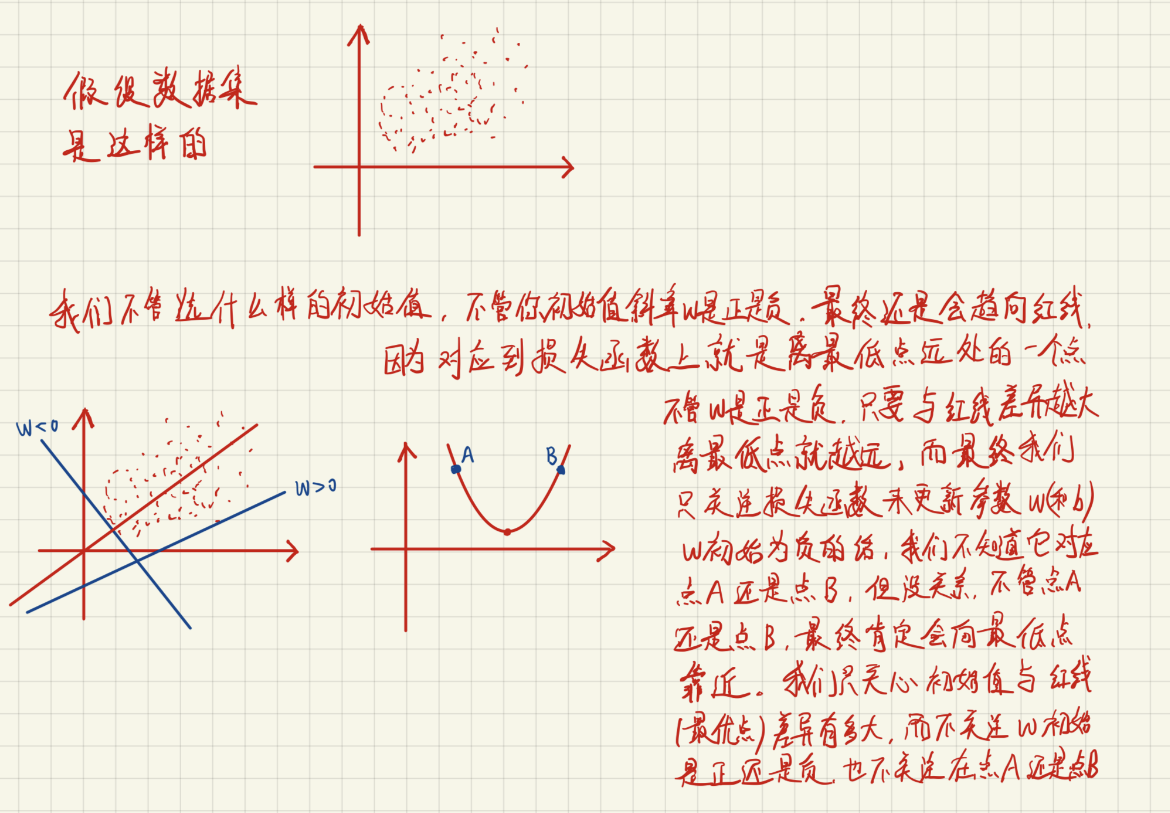 假设数据集
是这样的
我们不管选什么样的初始值，不管你初始值斜率w是正是负，最终还是会趋向红线，
因为对应到损失函数上就是离最低点远处的一个点
不管w是正是负，只要与红线差异越大
离最低点就越远，而最终我们
只关注损失函数来更新参数w(和b)
w初始为负的话，我们不知道它对应
点A还是点B，但没关系，不管点A
还是点B，最终肯定会向最低点
靠近。我们只关心初始值与红线
(最优点)差异有多大，而不关注w初始
是正还是负，也不关注在点A还是点B
W<0
W>0
A
B